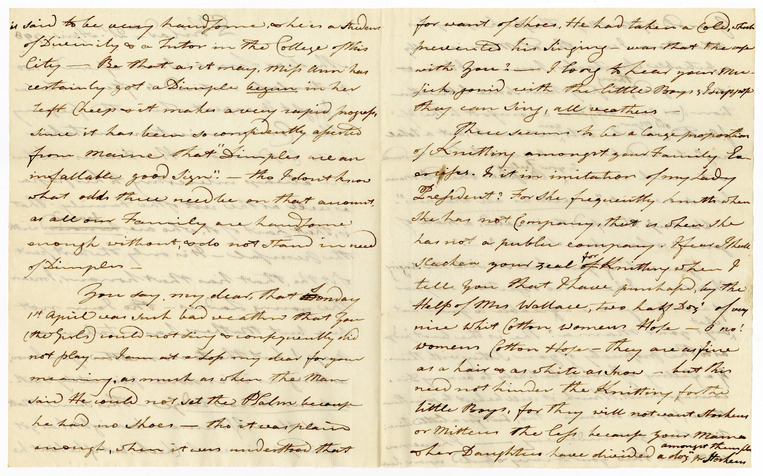 is said to be a very handsome, & he is a Student
of Divinity & a Tutor in the College of this
City — Be that as it may, Miss Ann has
certainly got a Dimple begun in her
left Cheek & it makes a very rapid progress,
since it has been so confidently asserted
from Maine that "Dimples are an
infallable good sign" — tho I don't know
what odds there need be on that account
as all our Family are handsome
enough without, & do not stand in need
of Dimples —
You say, my dear, that Sunday
1st April was such bad weather that You
(the Girls) could not sing & consequently did
not play — I am at a loss my dear for your
meaning, as much as when the Man
said He could not set the Psalm because
he had no Shoes — tho it was plain
enough, when it was understood that
for want of Shoes, He had taken a Cold, which
prevented his Singing — was that the case
with You? — I long to hear your Mu
sick, join'd with the little Boys, I suppose
they can Sing, all weathers —
There seems to be a large proportion
of Knitting amongst your Family Ex
ercises. Is it in imitation of my Lady
President? For She frequently knitts when
She has not Company, that is when she
has not a public company. I fear I shall
slacken your zeal for Knitting when I
tell you that I have purchased, by the
Help of Mrs Wallace, two half Dozn of very
nice Whit Cotton womens Hose — O no!
womens Cotton Hose — they are as fine
as a hair & as white as snow — but this
need not hinder the Knitting for the
little Boys, for they will not want Stockens
or Mittens the less because your Mama
& her Daughters have divided amongst them
a dozn pr Stockens